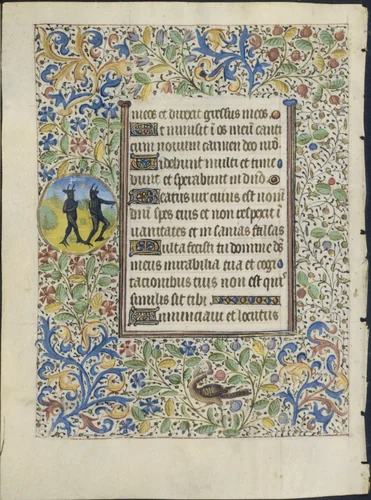 meos et direxit gressus meos
Et inmisit i os meu canti
cum novum carmen deo nro
Videbunt multi et time
bunt et sperabunt in dno
Beatus vir cuius est nom
dni spes eius et non respexit i
vanitates et in sanias falsas
Multa fecisti tu domine ds
meus mirabilia tua et cogi
tacionibus tuis non est qui
similis sit tibi
Annunciavi et locutus